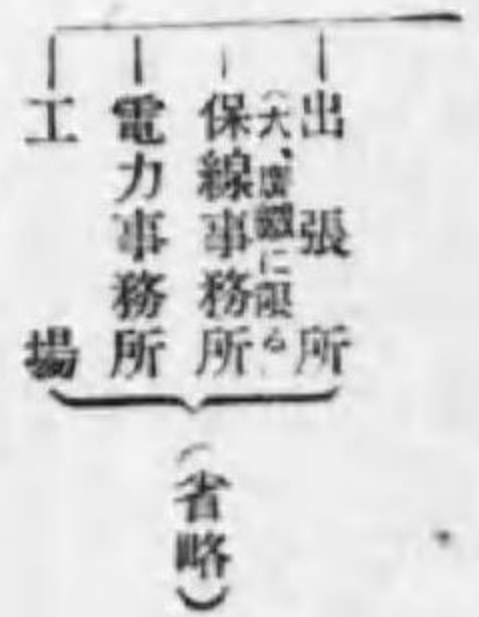 出張所
（大、廣鐵に限る）
保線事務所
電力事務所
工場
（省略）